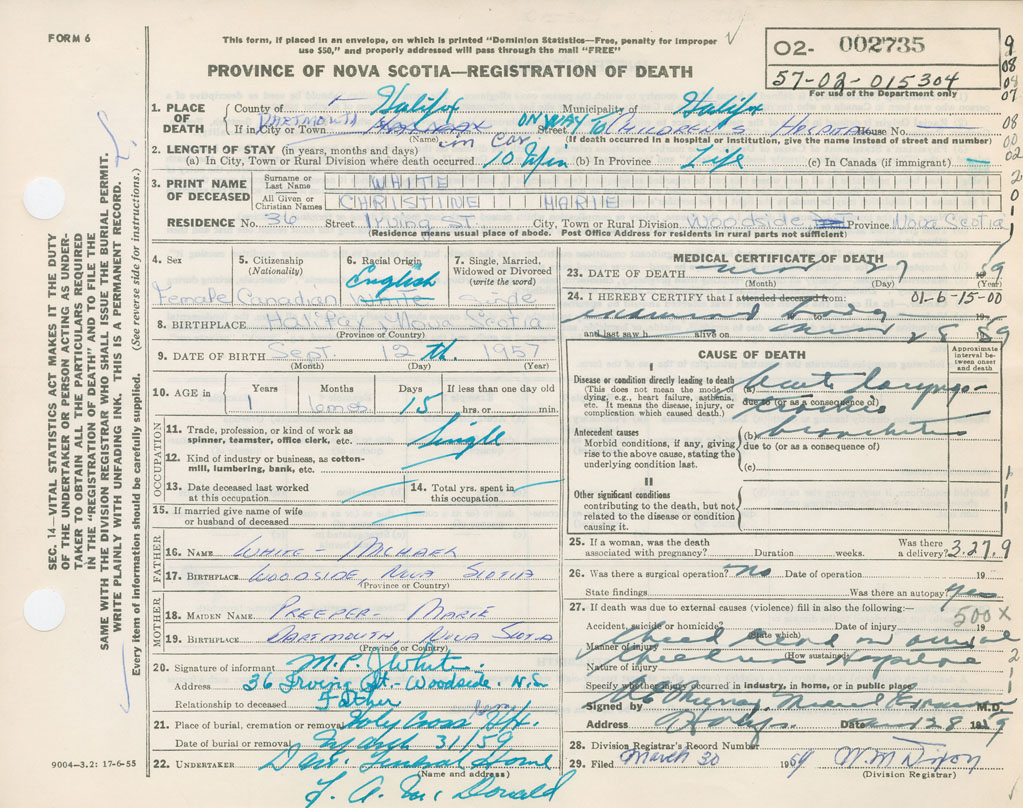 FORM 6
This form, if placed in an envelope, on which is printed "Dominion Statistics—Free, penalty for improper
use $50," and properly addressed will pass through the mail "FREE"
PROVINCE OF NOVA SCOTIA—REGISTRATION OF DEATH
02- 002735
57-02-015304
For use of the Department only
9
08
08
07
08
00
02
SEC. 14—VITAL STATISTICS ACT MAKES IT THE DUTY
OF THE UNDERTAKER OR PERSON ACTING AS UNDER-
TAKER TO OBTAIN ALL THE PARTICULARS REQUIRED
IN THE "REGISTRATION OF DEATH" AND TO FILE THE
SAME WITH THE DIVISION REGISTRAR WHO SHALL ISSUE THE BURIAL PERMIT.
WRITE PLAINLY WITH UNFADING INK. THIS IS A PERMANENT RECORD.
Every item of information should be carefully supplied. (See reverse side for instructions.)
1. PLACE OF DEATH County of Halifax Municipality of Halifax
If in City or Town DARTMOUTH HALIFAX Street ON WAY TO CHILDREN'S HOSPITAL House No.
(Name) in car (If death occurred in a hospital or institution, give the name instead of street and number)
2. LENGTH OF STAY (in years, months and days)
(a) In City, Town or Rural Division where death occurred 10 Min (b) In Province Life (c) In Canada (if immigrant)
3. PRINT NAME OF DECEASED Surname or Last Name WHITE
All Given or Christian Names CHRISTINE MARIE
RESIDENCE No. 36 Street Irving ST. City, Town or Rural Division Woodside Province Nova Scotia
(Residence means usual place of abode. Post Office Address for residents in rural parts not sufficient)
4. Sex 5. Citizenship (Nationality) 6. Racial Origin 7. Single, Married, Widowed or Divorced (write the word)
Female Canadian English White Single
8. BIRTHPLACE Halifax, Nova Scotia
(Province or Country)
9. DATE OF BIRTH Sept. 12th. 1957
(Month) (Day) (Year)
10. AGE in Years Months Days If less than one day old
1 6mos 15 hrs. or min.
OCCUPATION
11. Trade, profession, or kind of work as spinner, teamster, office clerk, etc. Single
12. Kind of industry or business, as cotton-mill, lumbering, bank, etc.
13. Date deceased last worked at this occupation
14. Total yrs. spent in this occupation
15. If married give name of wife or husband of deceased
FATHER
16. NAME WHITE - MICHAEL
17. BIRTHPLACE WOODSIDE, NOVA SCOTIA
(Province or Country)
MOTHER
18. MAIDEN NAME PREEPER - MARIE
19. BIRTHPLACE DARTMOUTH, NOVA SCOTIA
(Province or Country)
20. Signature of informant M.P. J. White.
Address 36 Irving St. - Woodside. N.S.
Relationship to deceased Father
21. Place of burial, cremation or removal Holy Cross
Date of burial or removal March 31/59
22. UNDERTAKER Funeral Home
(Name and address)
J. A. McDonald
9004—3.2: 17-6-55
MEDICAL CERTIFICATE OF DEATH
23. DATE OF DEATH Mar 27 19
(Month) (Day) (Year)
24. I HEREBY CERTIFY that I attended deceased from: 01-6-15-00
examined body 19
and last saw h alive on Mar 28 59
CAUSE OF DEATH
Approximate interval between onset and death
I
Disease or condition directly leading to death (a) acute laryngo-
(This does not mean the mode of dying, e.g., heart failure, asthenia, etc. It means the disease, injury, or complication which caused death.) due to (or as a consequence of)
Antecedent causes (b) bronchitis
Morbid conditions, if any, giving rise to the above cause, stating the underlying condition last. due to (or as a consequence of)
(c)
II
Other significant conditions contributing to the death, but not related to the disease or condition causing it.
25. If a woman, was the death associated with pregnancy? Duration weeks. Was there a delivery? 3.27.9
26. Was there a surgical operation? No Date of operation 19
State findings Was there an autopsy? Yes
27. If death was due to external causes (violence) fill in also the following:—
500X
Accident, suicide or homicide? Date of injury 19
(State which)
Manner of injury dead on arrival
(How sustained)
Nature of injury Children's Hospital
Specify whether injury occurred in industry, in home, or in public place
Signed by M.D.
Address Date Mar 28 19
28. Division Registrar's Record Number
29. Filed March 30 19 W. M. Dixon
(Division Registrar)